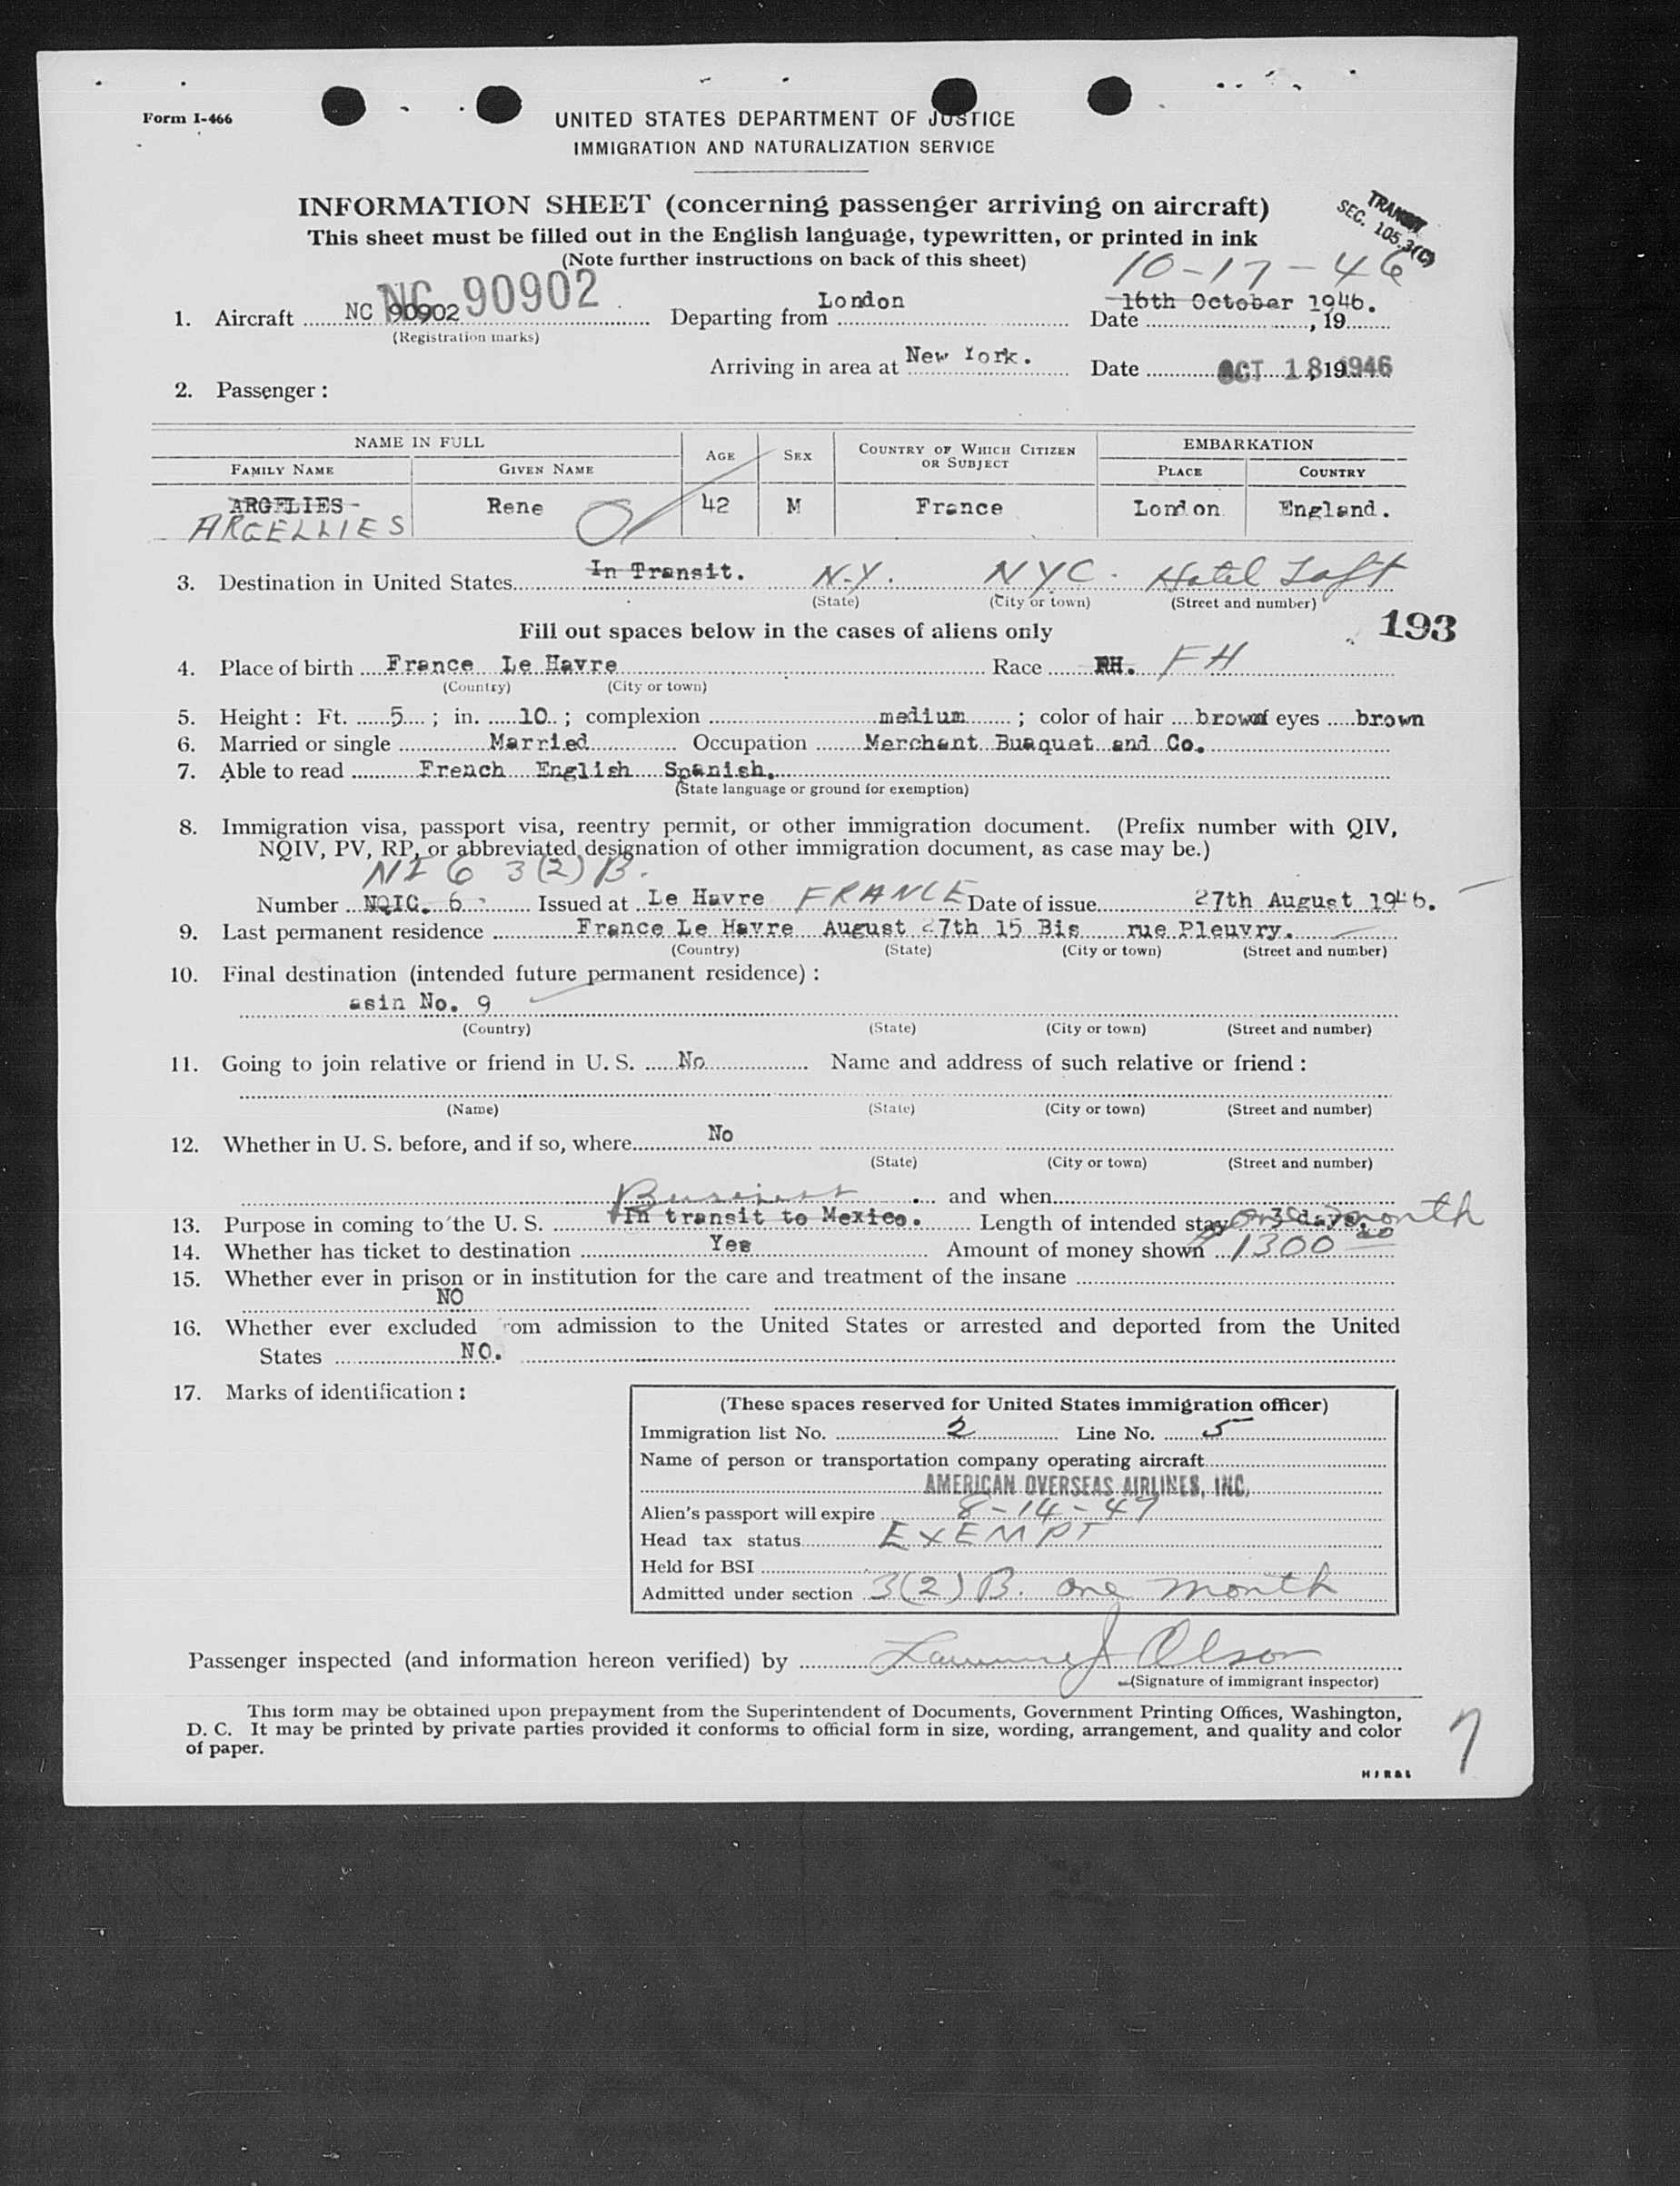 Form I-466
UNITED STATES DEPARTMENT OF JUSTICE
IMMIGRATION AND NATURALIZATION SERVICE
INFORMATION SHEET (concerning passenger arriving on aircraft)
This sheet must be filled out in the English language, typewritten, or printed in ink
(Note further instructions on back of this sheet)
TRANSIT
SEC. 105.3(C)
10-17-46
1. Aircraft NC 90902 NC 90902 Departing from London Date 16th October 1946. , 19
(Registration marks)
Arriving in area at New York. Date OCT 18 1946 , 19
2. Passenger :
NAME IN FULL AGE SEX COUNTRY OF WHICH CITIZEN OR SUBJECT EMBARKATION
FAMILY NAME GIVEN NAME PLACE COUNTRY
ARGELIES Rene 42 M France London England.
ARGELLIES
3. Destination in United States In Transit. N.Y. NYC. Hotel Taft
(State) (City or town) (Street and number)
193
Fill out spaces below in the cases of aliens only
4. Place of birth France Le Havre Race FH
(Country) (City or town)
5. Height : Ft. 5 ; in. 10 ; complexion medium ; color of hair brown of eyes brown
6. Married or single Married Occupation Merchant Buaquet and Co.
7. Able to read French English Spanish.
(State language or ground for exemption)
8. Immigration visa, passport visa, reentry permit, or other immigration document. (Prefix number with QIV,
NQIV, PV, RP, or abbreviated designation of other immigration document, as case may be.)
NI 6 3(2)B.
Number NQIC. 6 Issued at Le Havre FRANCE Date of issue 27th August 1946.
9. Last permanent residence France Le Havre August 27th 15 Bis rue Pleuvry.
(Country) (State) (City or town) (Street and number)
10. Final destination (intended future permanent residence) :
asin No. 9
(Country) (State) (City or town) (Street and number)
11. Going to join relative or friend in U. S. No Name and address of such relative or friend :
(Name) (State) (City or town) (Street and number)
12. Whether in U. S. before, and if so, where No
(State) (City or town) (Street and number)
Business and when
13. Purpose in coming to the U. S. In transit to Mexico. Length of intended stay 3 days. one month
14. Whether has ticket to destination Yes Amount of money shown $1300 00
15. Whether ever in prison or in institution for the care and treatment of the insane
NO
16. Whether ever excluded from admission to the United States or arrested and deported from the United
States NO.
17. Marks of identification :
(These spaces reserved for United States immigration officer)
Immigration list No. 2 Line No. 5
Name of person or transportation company operating aircraft
AMERICAN OVERSEAS AIRLINES, INC.
Alien's passport will expire 8-14-47
Head tax status EXEMPT
Held for BSI
Admitted under section 3(2)B. one month
Passenger inspected (and information hereon verified) by Lawrence J Olson
(Signature of immigrant inspector)
This form may be obtained upon prepayment from the Superintendent of Documents, Government Printing Offices, Washington,
D. C. It may be printed by private parties provided it conforms to official form in size, wording, arrangement, and quality and color
of paper.
7